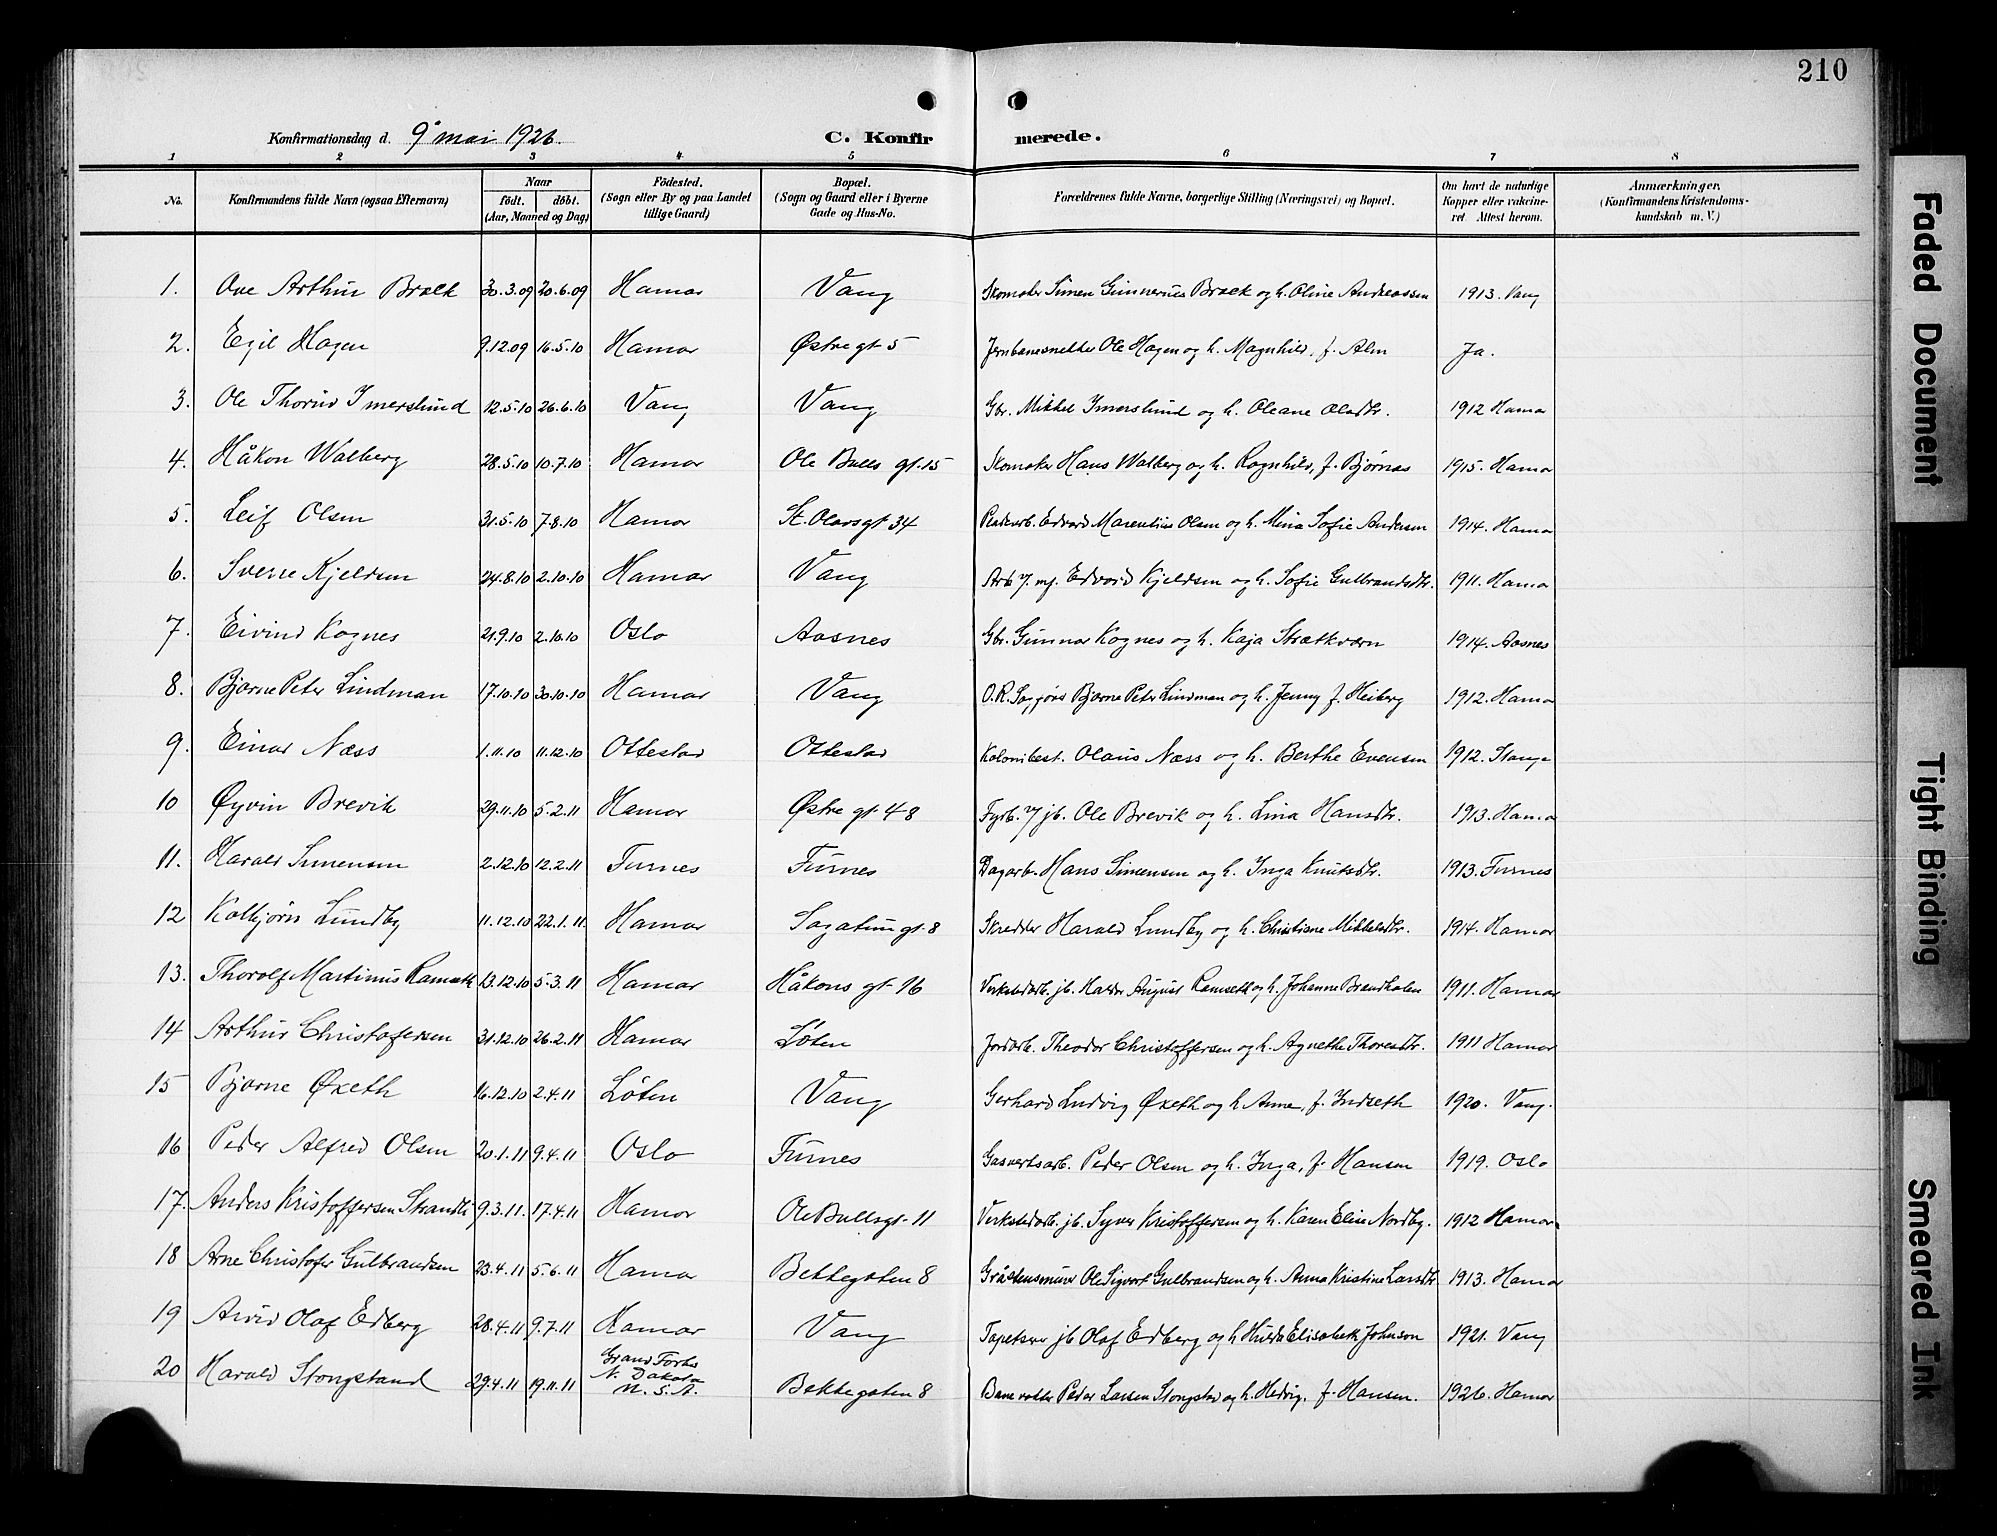 210
Konfirmationsdag d. 9' mai 1926.
C. Konfirmerede.
1 2 3 4 5 6 7 8
No. Konfirmandens fulde Navn (ogsaa Efternavn) Naar födt. döbt. (Aar, Maaned og Dag) Födested. (Sogn eller By og paa Landet tillige Gaard) Bopæl. (Sogn og Gaard eller i Byerne Gade og Hus-No. Forældrenes fulde Navne, borgerlige Stilling (Næringsvei) og Bopæl. Om havt de naturlige Kopper eller vakcineret. Attest herom. Anmærkninger. (Konfirmandens Kristendomskundskab m. V.)
1. Ove Arthur Braek 30.3.09 20.6.09 Hamar Vang Skomaker Simen Gunnerius Braek og h. Oline Andreassen 1913. Vang
2. Egil Hagen 9.12.09 16.5.10 Hamar Østre gt. 5 Jernbanesnekker Ole Hagen og h. Magnhild, f. Alm Ja.
3. Ole Thorud Imerslund 12.5.10 26.6.10 Vang Vang Gbr. Mikkel Imerslund og h. Oleane Olsdtr. 1912 Hamar
4. Håkon Walberg 28.5.10 10.7.10 Hamar Ole Bulls gt. 15 Skomaker Hans Walberg og h. Ragnhild, f. Bjørnås 1915. Hamar
5. Leif Olsen 31.5.10 7.8.10 Hamar St. Olavsgt. 34 Edvard Marentius Olsen og h. Mina Sofie Andersen 1914. Hamar
6. Sverre Kjeldsen 24.8.10 2.10.10 Hamar Vang Arb. v. mj. Edvard Kjeldsen og h. Sofie Gulbrandsdtr. 1911. Hamar
7. Eivind Kognes 21.9.10 2.10.10 Oslo Aasnes Gbr. Gunnar Kognes og h. Kaja Strætkværn 1914. Aasnes
8. Bjarne Peter Lindman 17.10.10 30.10.10 Hamar Vang O.R. Sagfører Bjarne Peter Lindman og h. Jenny f. Heiberg 1912. Hamar
9. Einar Næss 1.11.10 11.12.10 Ottestad Ottestad Kolonibest. Olaus Næss og h. Berthe Evensen 1912. Stange
10 Øyvin Brevik 29.11.10 5.2.11 Hamar Østre gt. 48 Fyrb. v jb. Ole Brevik og h. Lina Hansdtr. 1913. Hamar
11. Harald Simensen 2.12.10 12.2.11 Furnes Furnes Dagarb. Hans Simensen og h. Inga Knutsdtr. 1913. Furnes
12 Kolbjørn Lundby 11.12.10 22.1.11 Hamar Sagatun gt. 8 Skredder Harald Lundby og h. Christiane Mikkelsdtr. 1914. Hamar
13. Thorolf Martinus Ramseth 13.12.10 5.3.11 Hamar Håkons gt. 16 Verkstedarb. jb. Halder August Ramseth og h. Johanne Brandhalen 1911. Hamar
14 Arthur Christofersen 31.12.10 26.2.11 Hamar Løten Jordarb. Theodor Christoffersen og h. Agnethe Thoresdtr. 1911 Hamar
15 Bjarne Øxeth 16.12.10 2.4.11 Løten Vang Gerhard Ludvig Øxeth og h. Anne, f. Indseth 1920. Vang.
16 Peder Alfred Olsen 20.1.11 9.4.11 Oslo Furnes Gasverksarb. Peder Olsen og h. Inga, f. Hansen 1919. Oslo
17. Anders Kristoffersen Strandli 9.3.11. 17.4.11 Hamar Ole Bullsgt. 11 Verkstedarb. jb. Syver Kristoffersen og h. Karen Elise Nordby. 1912 Hamar
18 Arne Christofer Gulbrandsen 23.4.11 5.6.11 Hamar Bekkegaten 8 Gråstensmurer Ole Sigvart Gulbrandsen og h. Anna Kristine Larsdtr. 1913. Hamar
19 Arvid Olaf Edberg 28.4.11 9.7.11 Hamar Vang Tapetserer jb Olaf Edberg og h Hulda Elisabeth Johnson 1921. Vang
20 Harald Stongstand 29.4.11 19.11.11 Grand Forks N. Dakota U.S.A. Bekkegaten 8 Banevokter Peder Larsen Stongstad og h. Hedvig, f. Hansen. 1926. Hamar
Faded Document
Tight Binding
Smeared Ink